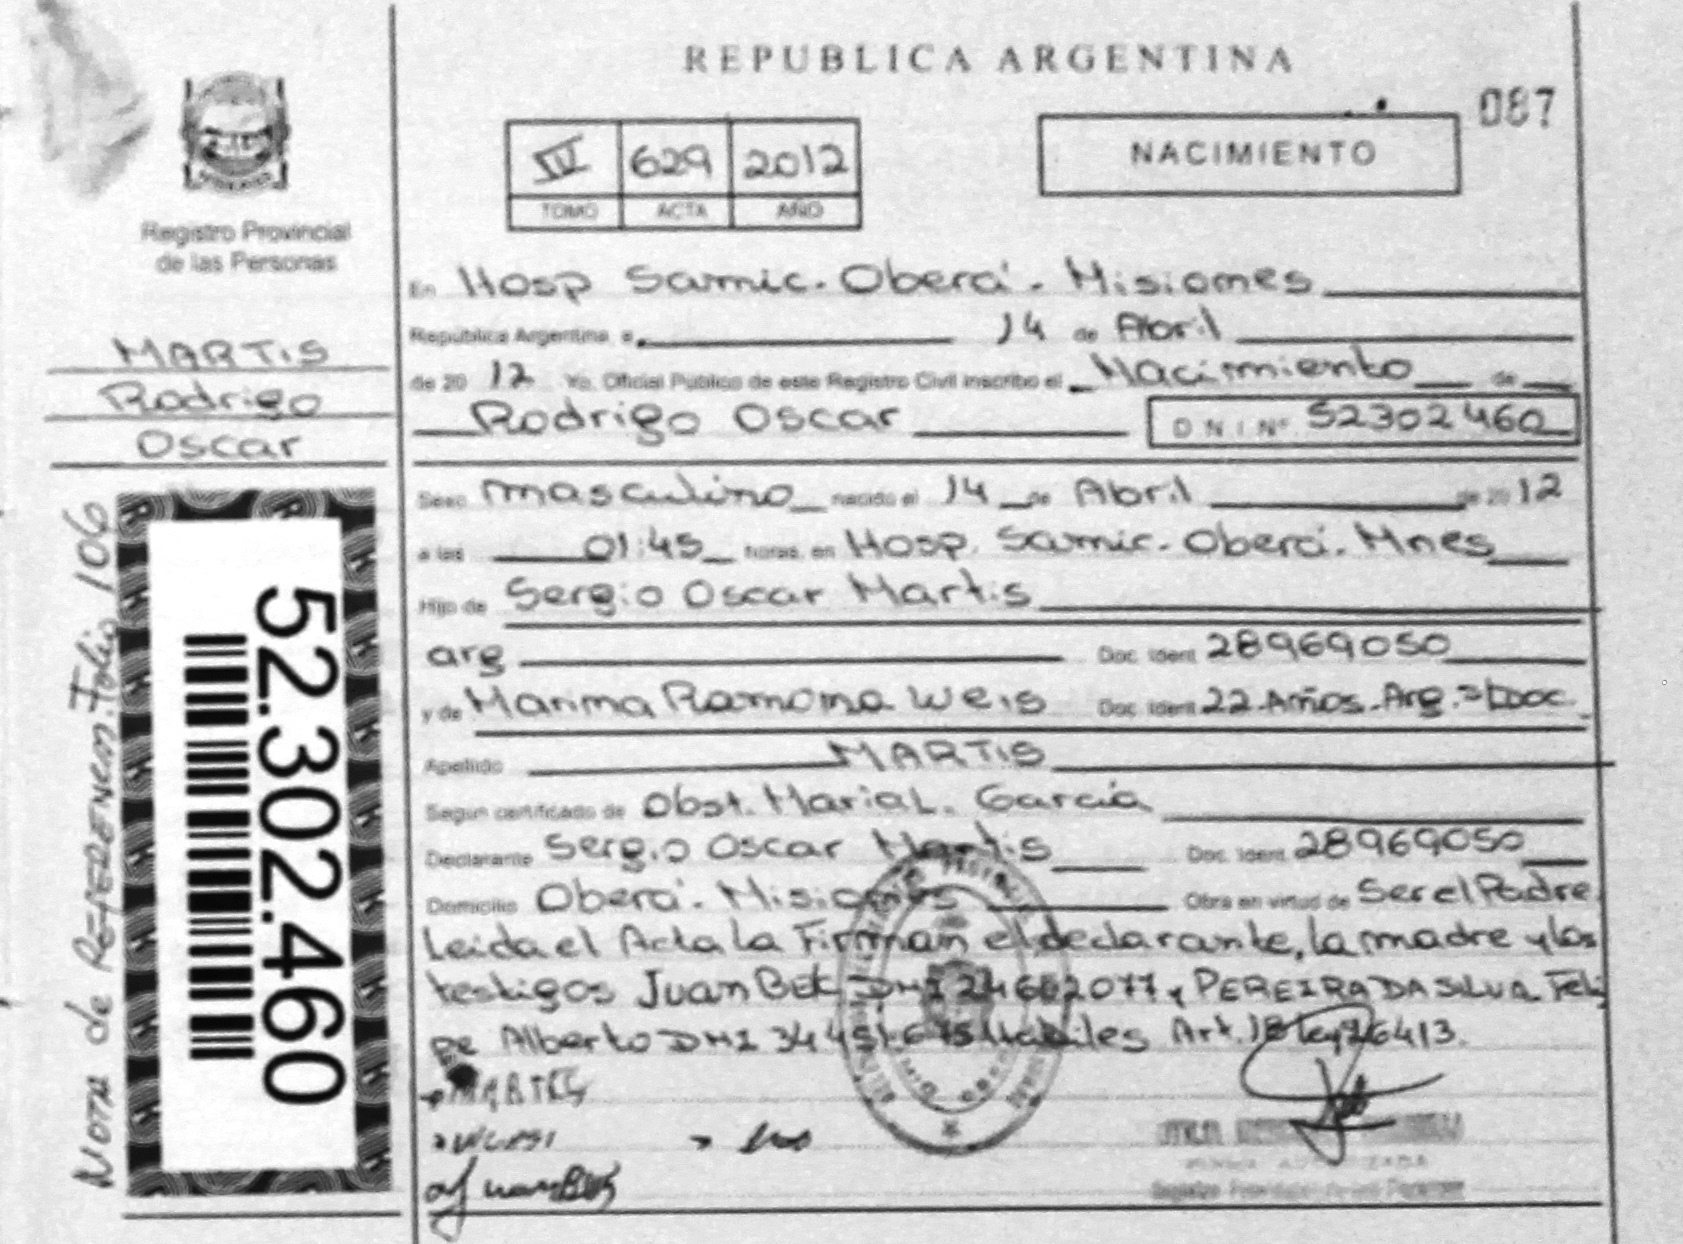 REPUBLICA ARGENTINA
087
IV 629 2012
TOMO ACTA AÑO
NACIMIENTO
Registro Provincial
de las Personas
MARTIS
Rodrigo
Oscar
Nota de Referencia Folio 106
52.302.460
En Hosp Samic. Oberá. Misiones
República Argentina a 14 de Abril
de 20 12 Yo, Oficial Público de este Registro Civil inscribo el Nacimiento de
Rodrigo Oscar DNI Nº 52302460
Sexo masculino nacido el 14 de Abril de 20 12
a las 01:45 horas, en Hosp. Samic. Oberá. Mnes
Hijo de Sergio Oscar Martis
arg Doc. Ident 28969050
y de Marina Ramona Weis Doc. Ident 22 Años. Arg.
Apellido MARTIS
Según certificado de Obst. Maria L. García
Declarante Sergio Oscar Martis Doc. Ident 28969050
Domicilio Oberá. Misiones Obra en virtud de Ser el Padre
Leida el Acta La Firman el declarante, la madre y los
testigos Juan DNI y PEREIRA DA SILVA Feli
pe Alberto DNI Habiles Art. 18 Ley 26413.